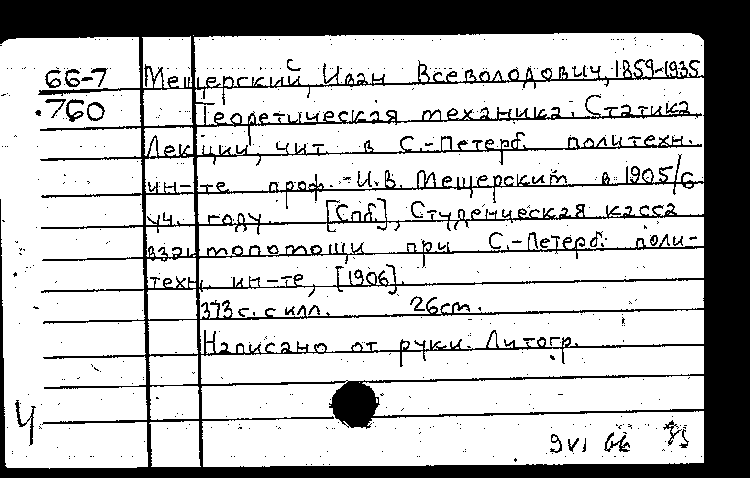 66-7 Мещерский, Иван Всеволодович, 1859-1935
760 Теоретическая механика. Статика.
Лекции, чит. в С.-Петерб. политехн.
ин-те проф. И.В. Мещерским в 1905/6
уч. году. [Спб], Студенческая касса
взаимопомощи при С.-Петерб. поли-
техн. ин-те, [1906].
373 с. с илл. 26 cm.
Написано от руки. Литогр.
Ч
9 VI 66